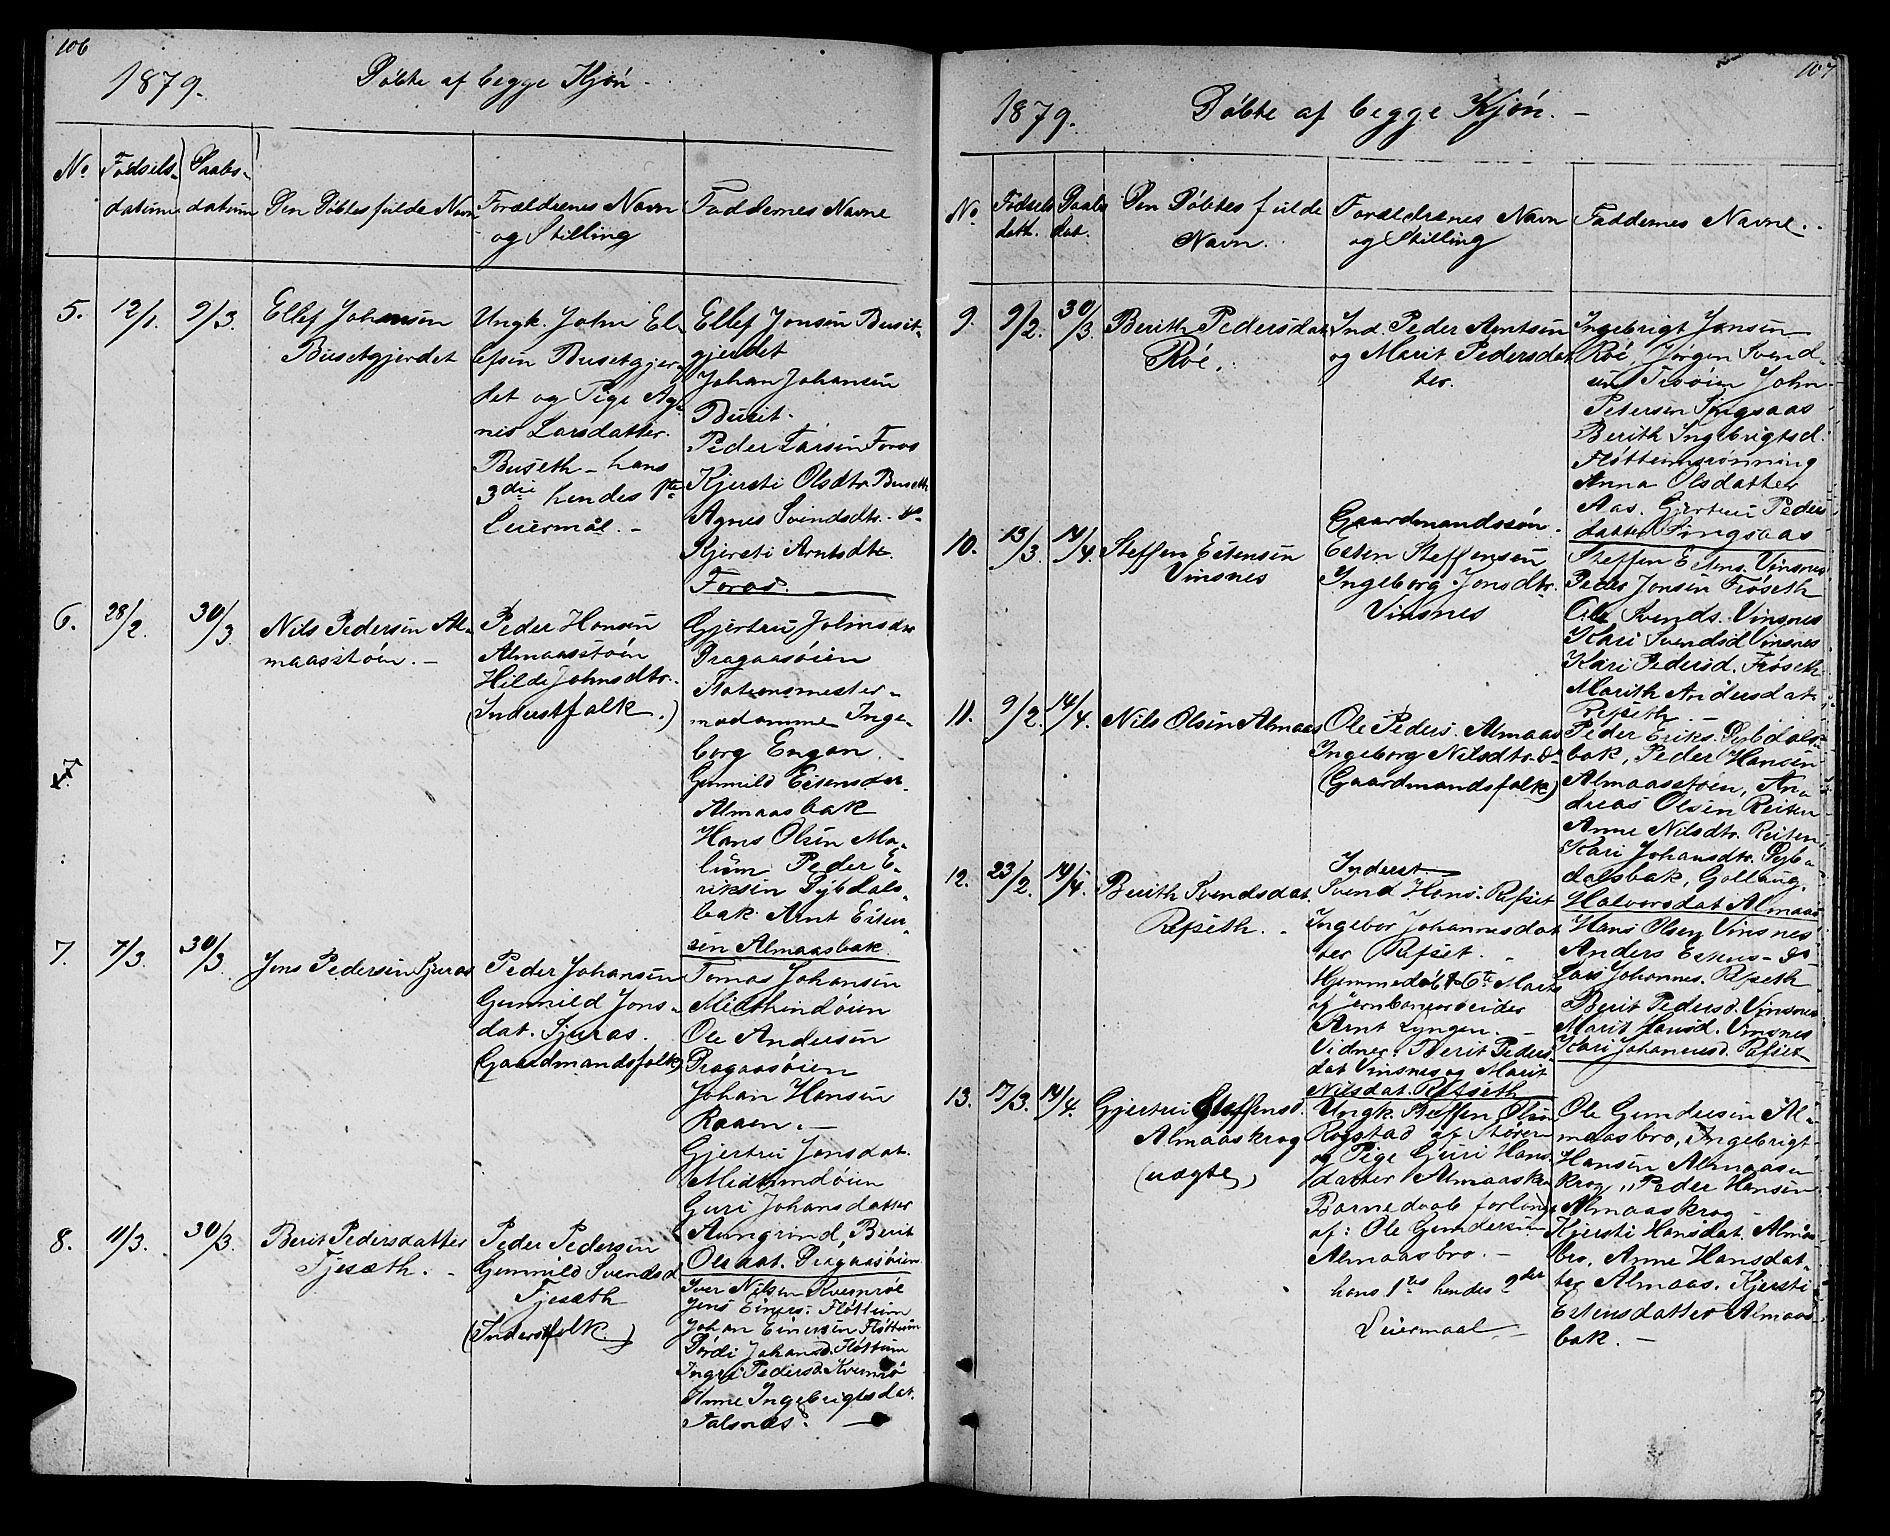 106
1879.
Døbte af begge Kjøn -
No
Fødsels-
datum
Daabs-
datum
Den Døbtes fulde Navn
Forældrenes Navn
og Stilling
Faddernes Navne
5.
12/1.
9/3.
Ellef Johansen
Busetgjerdet
Ungk. John El-
lefsen Busetgjer-
det og Pige Ag-
nes Larsdatter
Buseth - hans
3die hendes 1ste
Leiermål. -
Ellef Jonsen Buset-
gjerdet
Johan Johansen
Buset -
Peder Larsen Foros
Kjersti Olsdtr. Buseth
Agnes Svendsdtr. do
Kjersti Arntsdtr.
Foros.
6.
28/2.
30/3
Nils Pedersen Al-
maasstøen. -
Peder Hansen
Almaasstøen
Hilde Johnsdtr.
(Inderstfolk.)
Gjertru Johnsdr
Dragaasøien
Stationsmester-
madamme Inge-
borg Engan.
Gunnild Estensdtr.
Almaasbak
Hans Olsen
Peder E-
riksen Dybdals-
bak Arnt Esten-
sen Almaasbak.
7.
7.
7/3.
30/3.
Jens Pedersen Fjuras
Peder Johansen
Gunnild Jons-
dat. Fjuras.
(Gaardmandsfolk)
Tomas Johansen
Midthindøien
Ole Andersen
Dragaasøien
Johan Hansen
Raaen. -
Gjertru Jonsdat.
Midthindøien
Guri Johansdatter
Aungrind, Berit
Olsdat. Dragaasøien
8.
11/3.
30/3.
Berit Pedersdatter
Fjesæth. -
Peder Pedersen
Gunnild Svendsd
Fjesæth
(Inderstfolk.)
Iver Nilsen Kvernrøe
Jens Einers. Fløttum
Johan Einersen Fløttum
Dordi Johansd. Fløttum
Ingri Pedersd. Kvernrø
Anne Ingebrigtsdat.
Talsnæs. -
107
1879.
Døbte af begge Kjøn. -
No
Fødsels
dath.
Daabs
dat.
Den Døbtes fulde
Navn.
Forældrenes Navn
og Stilling
Faddernes Navne.
9.
9/2.
30/3.
Berith Pedersdat
Røe.
Ind. Peder Arntsen
og Marit Pedersdat
ter.
Ingebrigt Jonsen
Røe, Jørgen Svend-
sen John
Petersen Singsaas
Berith Ingebrigtsd.
Fløttumsrønning
Anna Olsdatter
Aas. Gjertru Peders
datter Singsaas
10.
13/3
14/4.
Steffen Estensen
Vinsnes
Gaardmandssøn.
Esten Steffensen
Ingeborg Jonsdtr.
Vinsnes
Steffen Estens. Vinsnes
Peder Jonsen Frøseth
Ole Svends. Vinsnes
Kari Svendsd Vinsnes
Kari Pedersd. Frøseth
Marith Andersdat
Refseth -
11.
9/2.
14/4.
Nils Olsen Almaas
Ole Peders. Almaas
Ingeborg Nilsdtr. do
(Gaardmandsfolk)
Peder Eriks. Dybdals-
bak, Peder Hansen
Almaasstøen, An-
dreas Olsen Reiten
Anne Nilsdtr. Reiten
Kari Johansdtr. Dyb-
dalsbak, Gollaug
Halvorsdat Almaas
12.
23/2.
14/4.
Berith Svendsdat.
Refseth. -
Inderst
Svend Hans. Refset
Ingebor Johannesdat
ter Refset. -
Hjemmedøbt 6te Marts
af Jernbanearbeider
Arnt Lyngen. -
Vidner: Berit Peders-
dat Vinsnes og Marit
Nilsdat. Refseth
Hans Olsen Vinsnes
Anders do
Lars Johannes. Refseth
Berit Pedersd. Vinsnes
Marit Hansd. Vinsnes
Kari Johannesd. Refset
13.
17/3.
14/4.
Gjertru Steffensd.
Almaaskrog
(uægte)
Ungk. Steffen Olsen
Rogstad af Støren
og Pige Guri Hans
datter Almaaskro
Barnedaab forlangt
af: Ole Gundersen
Almaasbro. -
hans 1ste hendes 2den
Leiermaal -
Ole Gundersen Al-
maasbro, Ingebrigt
Hansen Almaas-
krog, Peder Hansen
Almaaskrog -
Kjersti Hansdat. Almaas
bro, Anne Hansdat-
ter Almaas. Kjersti
Estensdatter Almaas
bak. -